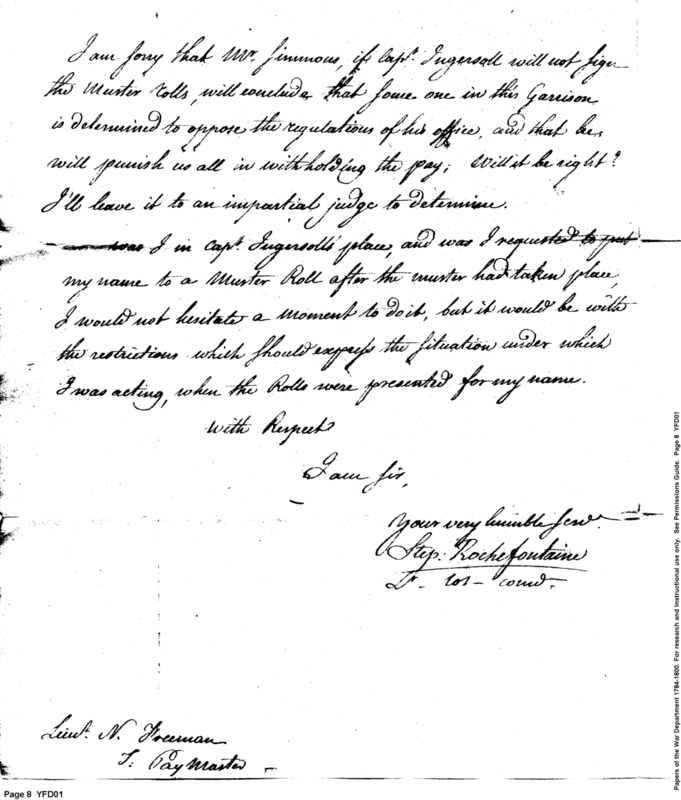 I am sorry that Mr. Simmons, if Capt. Ingersoll will not sign
the Muster rolls, will conclude that some one in this Garrison
is determined to oppose the regulations of his office, and that he
will punish us all in withholding the pay; Will it be right?
I'll leave it to an impartial judge to determine.
was I in Capt. Ingersoll's place, and was I requested to put
my name to a Muster Roll after the muster had taken place,
I would not hesitate a moment to do it, but it would be with
the restrictions which should express the situation under which
I was acting, when the Rolls were presented for my name.
With Respect
I am Sir,
Your very humble Servt.
Step. Rochefontaine
Lt. Col. comd.
Lieut. N. Freeman
T: PayMaster
Page 8 YFD01
Papers of the War Department 1784-1800. For research and instructional use only. See Permissions Guide. Page 8 YFD01